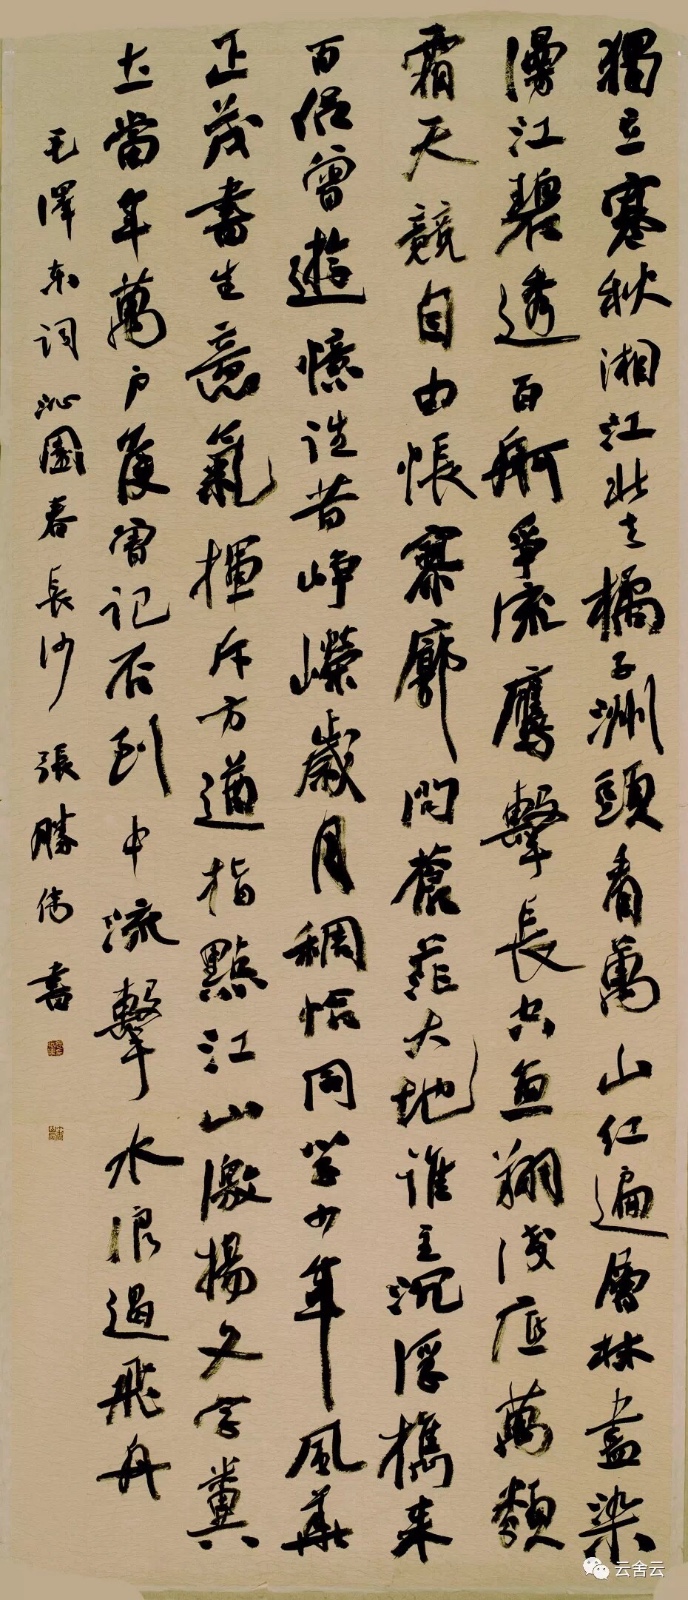 獨立寒秋湘江北去橘子洲頭看萬山紅遍層林盡染
漫江碧透百舸爭流鷹擊長空魚翔淺底萬類
霜天競自由悵寥廓問蒼茫大地誰主沉浮攜来
百侶曾遊憶往昔崢嶸歲月稠恰同學少年風華
正茂書生意氣揮斥方遒指點江山激揚文字糞
土當年萬户侯曾記否到中流擊水浪遏飛舟
毛澤東詞沁園春長沙 張勝偉書
云舍云